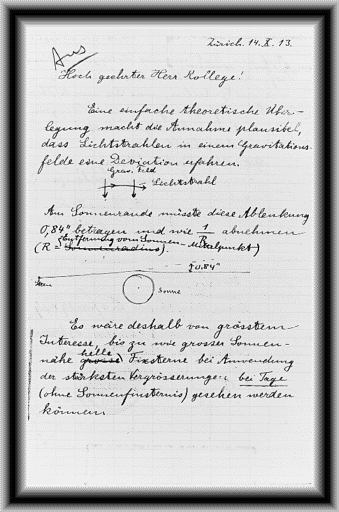 Zürich. 14. X. 13.
Hoch geehrter Herr Kollege!
Eine einfache theoretische Über-
legung macht die Annahme plausibel,
dass Lichtstrahlen in einem Gravitations-
felde eine Deviation erfahren.
Grav. Feld
Lichtstrahl
Am Sonnenrande müsste diese Ablenkung
0,84" betragen und wie 1/R abnehmen
(R = Entfernung vom Sonnen-Mittelpunkt)
Sonnenradius
0.84"
Stern
Sonne
Es wäre deshalb von grösstem
Interesse, bis zu wie grosser Sonnen-
nähe helle grosse Fixsterne bei Anwendung
der stärksten Vergrösserungen bei Tage
(ohne Sonnenfinsternis) gesehen werden
können.